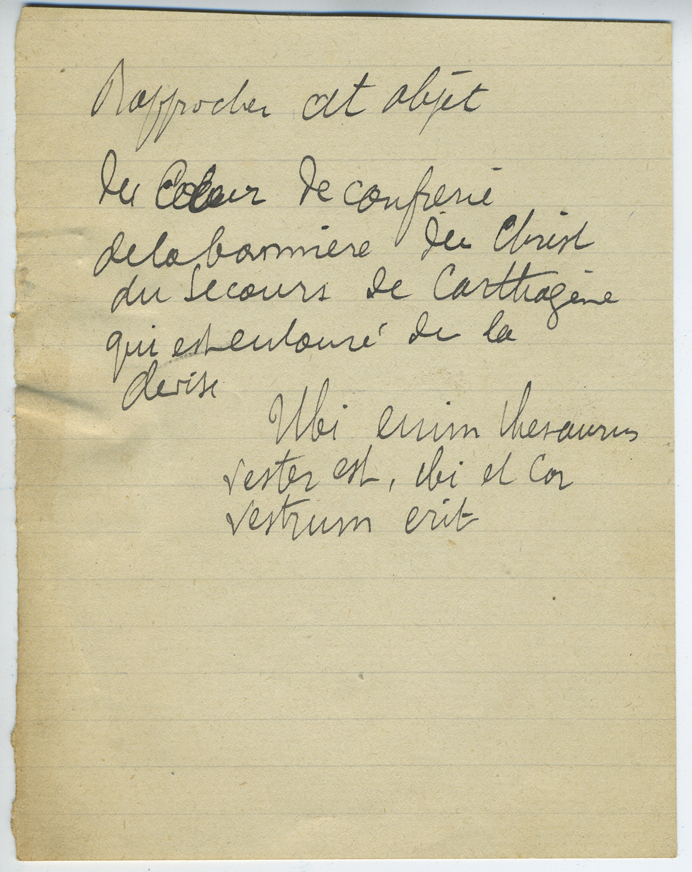 Rapprocher cet objet
du Coeur de confrerie
de la bannière du Christ
du Secours de Carthagène
qui est entouré de la
devise
Ubi enim thesaurus
vester est, ibi et Cor
vestrum erit